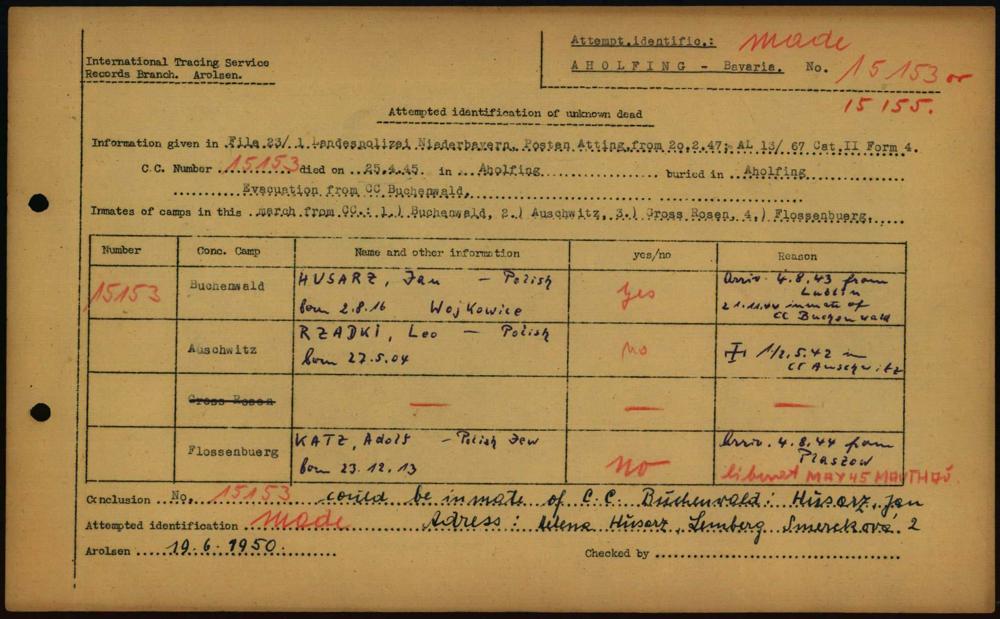 International Tracing Service
Records Branch. Arolsen.
Attempt.identific.: made
AHOLFING - Bavaria. No. 15153 or
15155.
Attempted identification of unknown dead
Information given in File 23/ 1 Landespolizei Niederbayern, Posten Atting from 20.2.47; AL 13/ 67 Cat.II Form 4.
C.C. Number 15153 died on 25.4.45. in Aholfing buried in Aholfing
Evacuation from CC Buchenwald.
Inmates of camps in this march from CC.: 1.) Buchenwald, 2.) Auschwitz, 3.) Gross Rosen, 4.) Flossenbuerg.
Number Conc. Camp Name and other information yes/no Reason
15153 Buchenwald HUSARZ, Jan - Polish yes Arriv. 4.8.43 from
Lublin
born 2.8.16 Wojkowice 21.11.44 inmate of
CC Buchenwald
Auschwitz RZADKI, Leo - Polish no 1/2.5.42 in
born 27.5.04 CC Auschwitz
Gross Rosen — — —
Flossenbuerg KATZ, Adolf - Polish Jew no Arriv. 4.8.44 from
Plaszow
born 23.12.13 liberat MAY 45 MAUTHAU.
Conclusion No. 15153 could be inmate of C.C. Buchenwald: Husarz, Jan
Attempted identification made Adress: Helena Husarz, Lemberg Smerekova 2
Arolsen 19.6.1950. Checked by